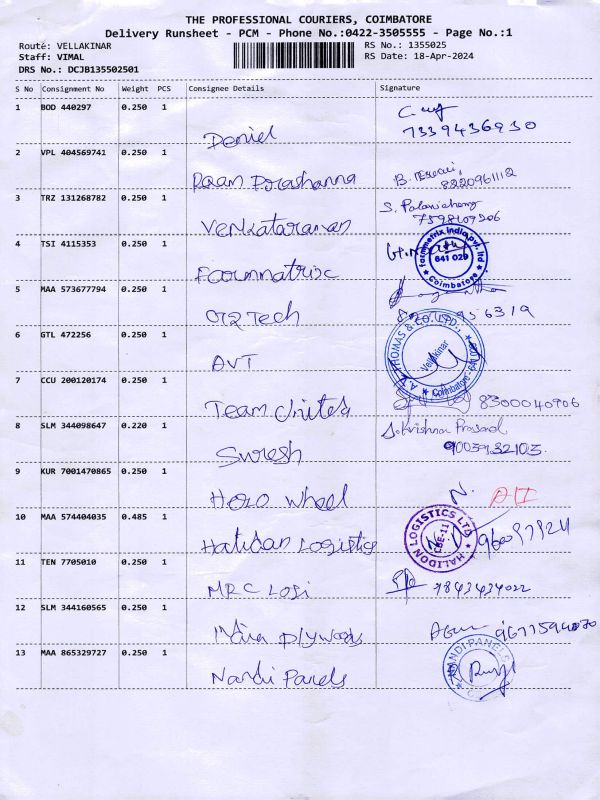 THE PROFESSIONAL COURIERS, COIMBATORE
Delivery Runsheet - PCM - Phone No.:0422-3505555 - Page No.:1
Route: VELLAKINAR
RS No.: 1355025
Staff: VIMAL
RS Date: 18-Apr-2024
DRS No.: DCJB135502501
S No Consignment No Weight PCS Consignee Details Signature
1 BOD 440297 0.250 1
Deniel
7339436930
2 VPL 404569741 0.250 1
Raam Prashanna
B.
8220961112
3 TRZ 131268782 0.250 1
Venkataraman
S. Palanichamy
7598107206
4 TSI 4115353 0.250 1
Farmnatrix
farmmatrix india pvt. ltd
641 029
Coimbatore
5 MAA 573677794 0.250 1
O12 Tech
956319
6 GTL 472256 0.250 1
AVT
A.V. THOMAS & CO. LTD.,
Vellakinar
Coimbatore - 641 029
7 CCU 200120174 0.250 1
Team United
8300040906
8 SLM 344098647 0.220 1
Suresh
S. Krishna Prasad
9003932103
9 KUR 7001470865 0.250 1
Holo Wheel
N.
10 MAA 574404035 0.485 1
Halidan Logistics
HALIDON LOGISTICS LTD
CBE-11
11 TEN 7705010 0.250 1
MRC Logi
9843434022
12 SLM 344160565 0.250 1
India Plywoods
9677594070
13 MAA 865329727 0.250 1
Nandi Panels
NANDI PANELS